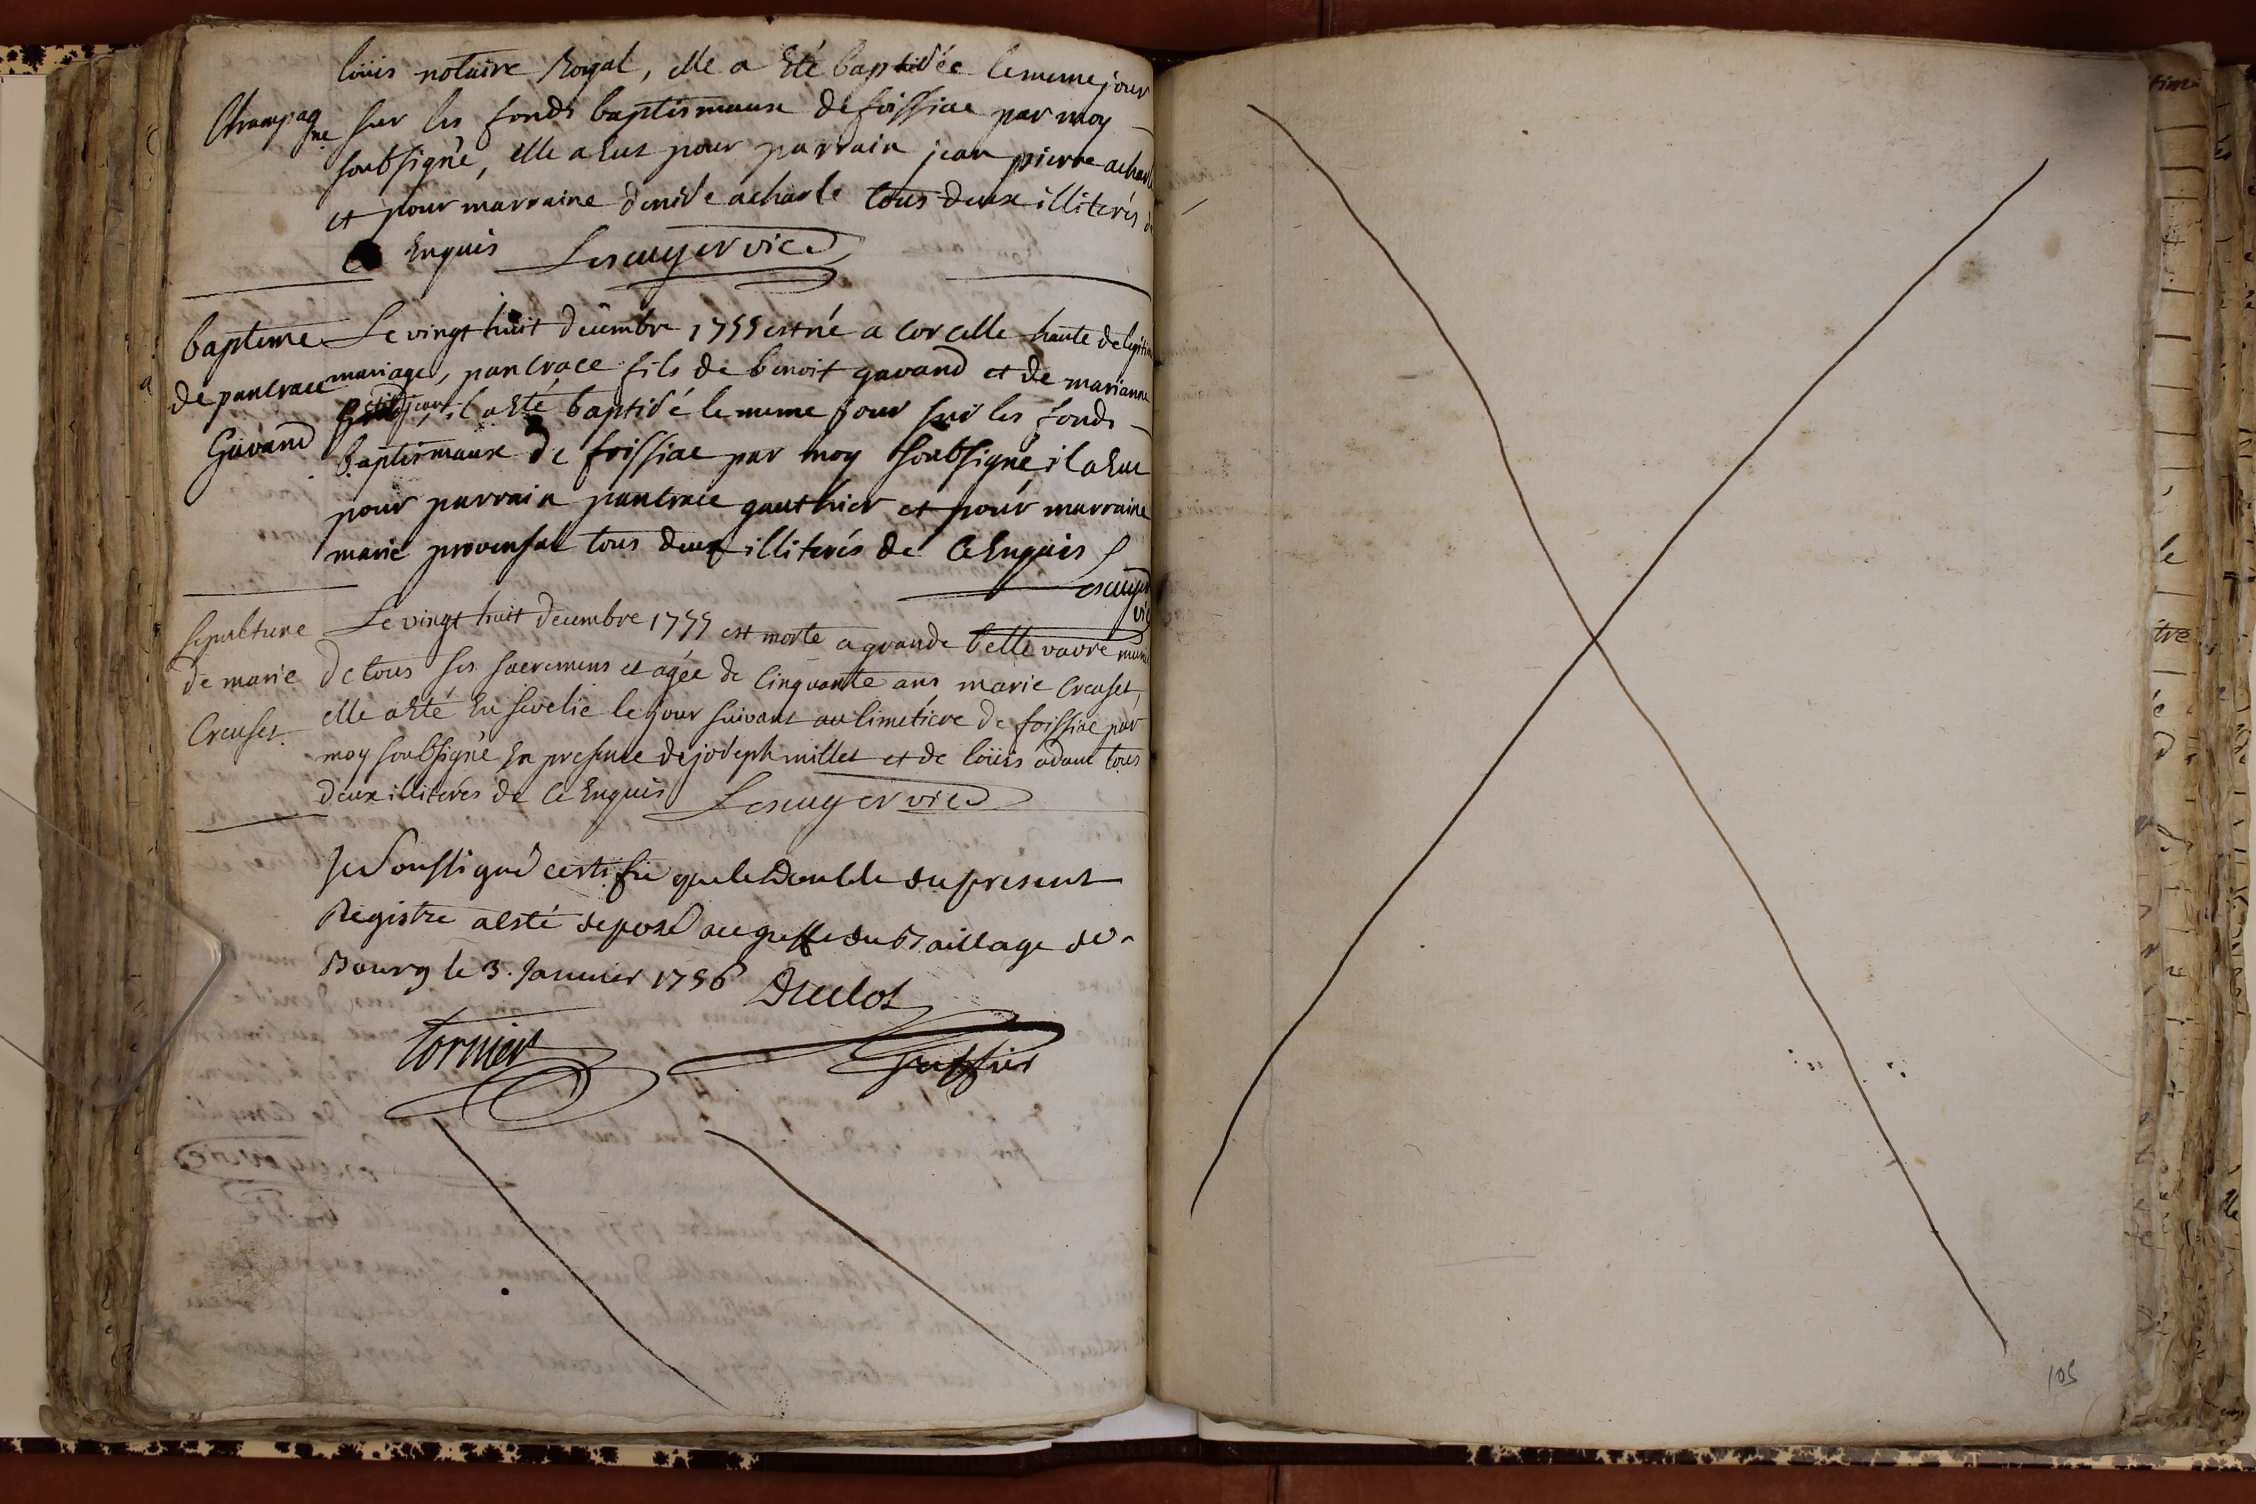 louis notaire Royal, elle a Eté baptidée le meme jour
Champag
ne
sur les fonds baptismaux de foissiac par moy
soubsigné, elle a Eut pour parrain jean pierre acharle
et pour marraine denise acharle tous deux illiterés de
ce Enquis Lescuyer vice
bapteme
de pancrace
Gavand
Le vingt huit decembre 1755 est né a corcelle haute de legitime
mariage, pancrace fils de benoit gavand et de marianne
il a Eté baptisé le meme jour sur les fonds
baptismaux de foissiac par moy soubsigné, il a Eut
pour parrain pancrace gauthier et pour marraine
marie provensal tous deux illiterés de ce Enquis
Lescuyer
vic
sepulture
de marie
Creuset
Le vingt huit decembre 1755 est morte a grande belle vavre munie
de tous ses sacremens et agée de cinquante ans marie Creuset,
elle a Eté Ensevelie le jour suivant au cimetiere de foissiac par
moy soubsigné En presence de joseph millet et de louis adam tous
deux illiterés de ce Enquis Lescuyer vice
Je Soussigné certifie que le Double du present
Registre a esté deposé au greffe du Baillage de
Bourg le 3. Janvier 1756 Duclos
Cornier
Greffier
105